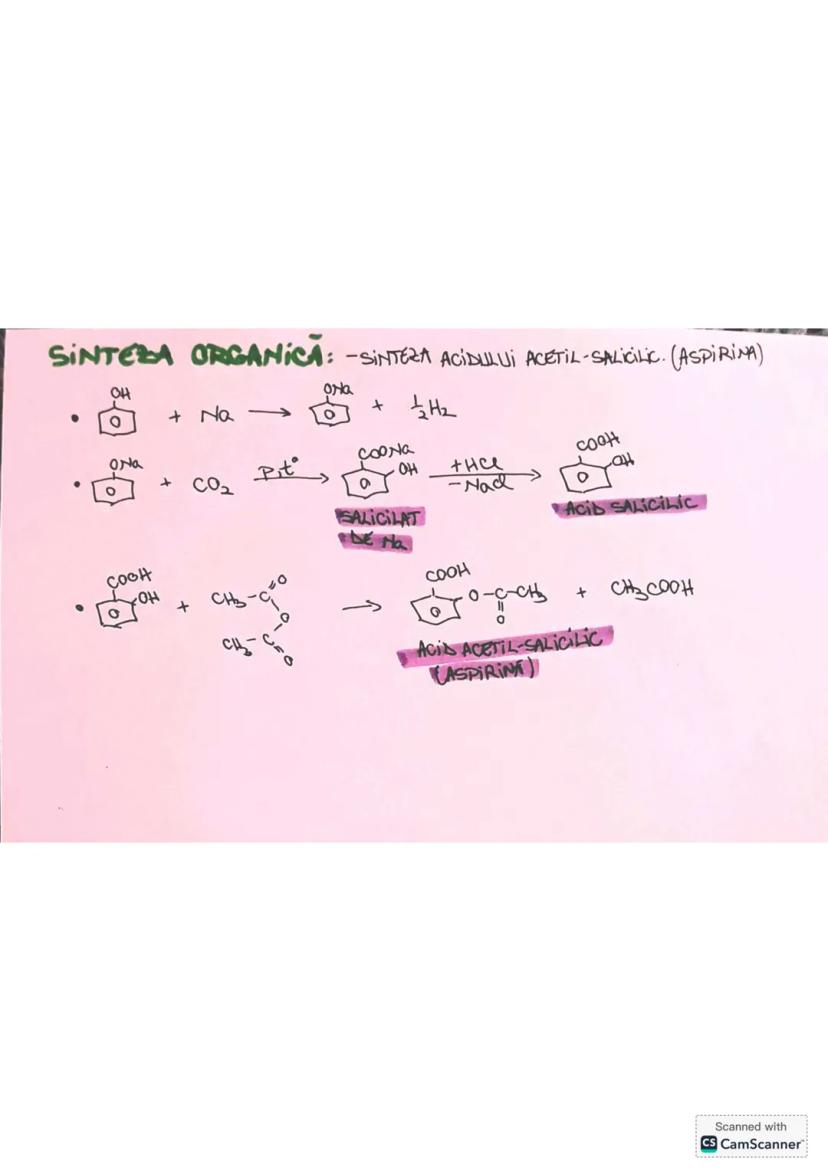 SINTEZA ORGANICĂ: - SINTEZA ACIDULUI ACETIL-SALICILIC. (ASPIRINA)
OH ONa
• + Na → + ½H₂
ONa COONa COOH
• + CO₂ P,t° → OH +HCl -NaCl → OH
SALICILAT DE Na ACID SALICILIC
COOH COOH
• OH + CH₃-C=O O CH₃-C=O → O-C-CH₃ + CH₃COOH
O
ACID ACETIL-SALICILIC
(ASPIRINA)
Scanned with
CS CamScanner